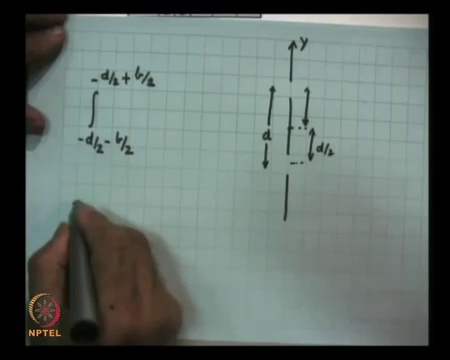 -d/2 + b/2
∫
-d/2 - b/2
Y
d
d/2
NPTEL